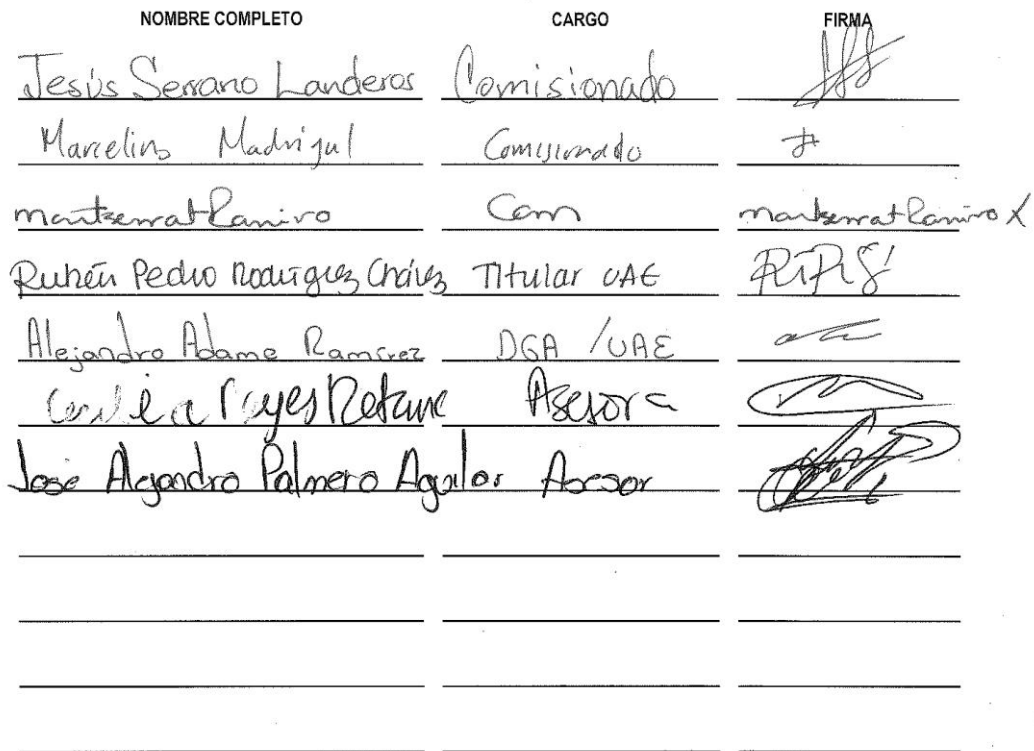 NOMBRE COMPLETO CARGO FIRMA
Jesús Serrano Landeros Comisionado
Marcelino Madrigal Comisionado
montserrat Ramiro Com montserrat Ramiro X
Rubén Pedro Rodríguez Chávez Titular UAE
Alejandro Adame Ramírez DGA / UAE
Reyes Retana Asesora
José Alejandro Palmero Aguilar Asesor